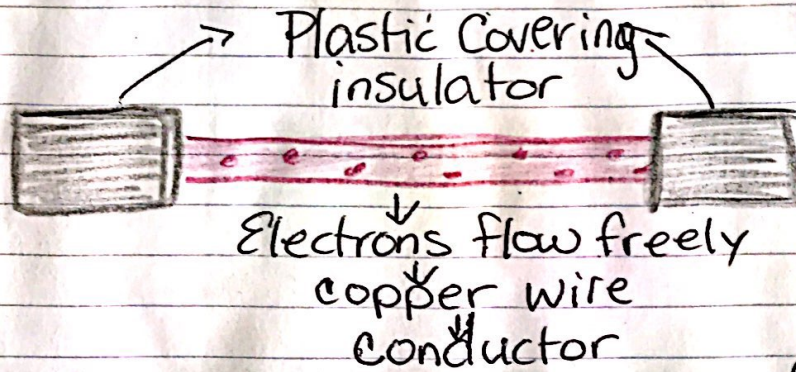 Plastic Covering
insulator
Electrons flow freely
copper wire
conductor